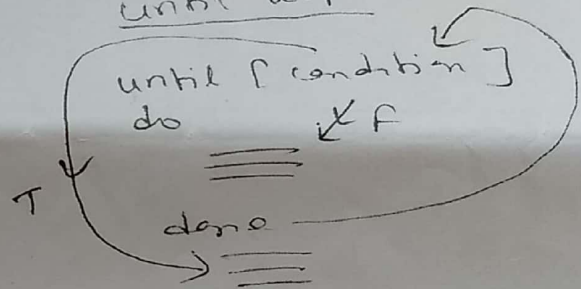 until
until [ condition ]
do
F
T
done